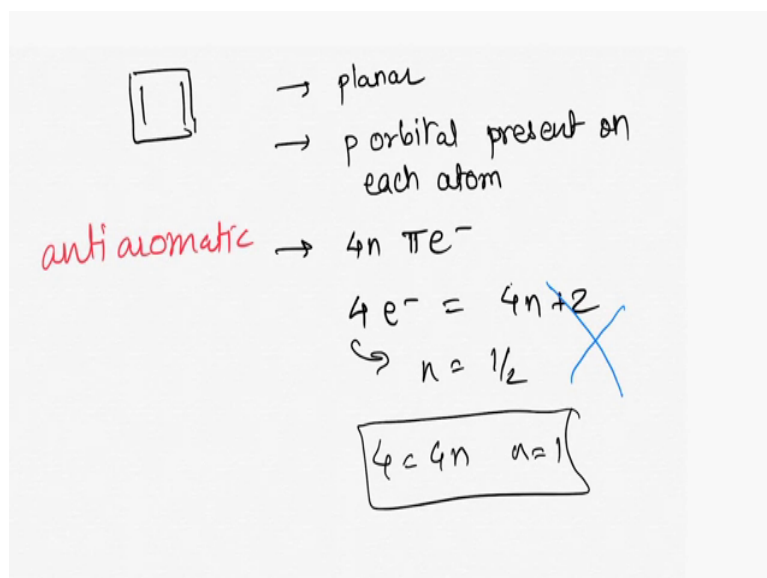 → planar
→ p orbital present on
each atom
anti aromatic → 4n πe⁻
4 e⁻ = 4n+2
↪ n = 1/2
4 = 4n n=1